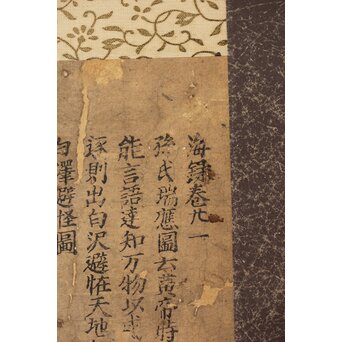 海録巻廿一
孫氏瑞應圖云黄帝時
能言語達知万物以
遂則出白沢避恠天地
白澤避恠圖